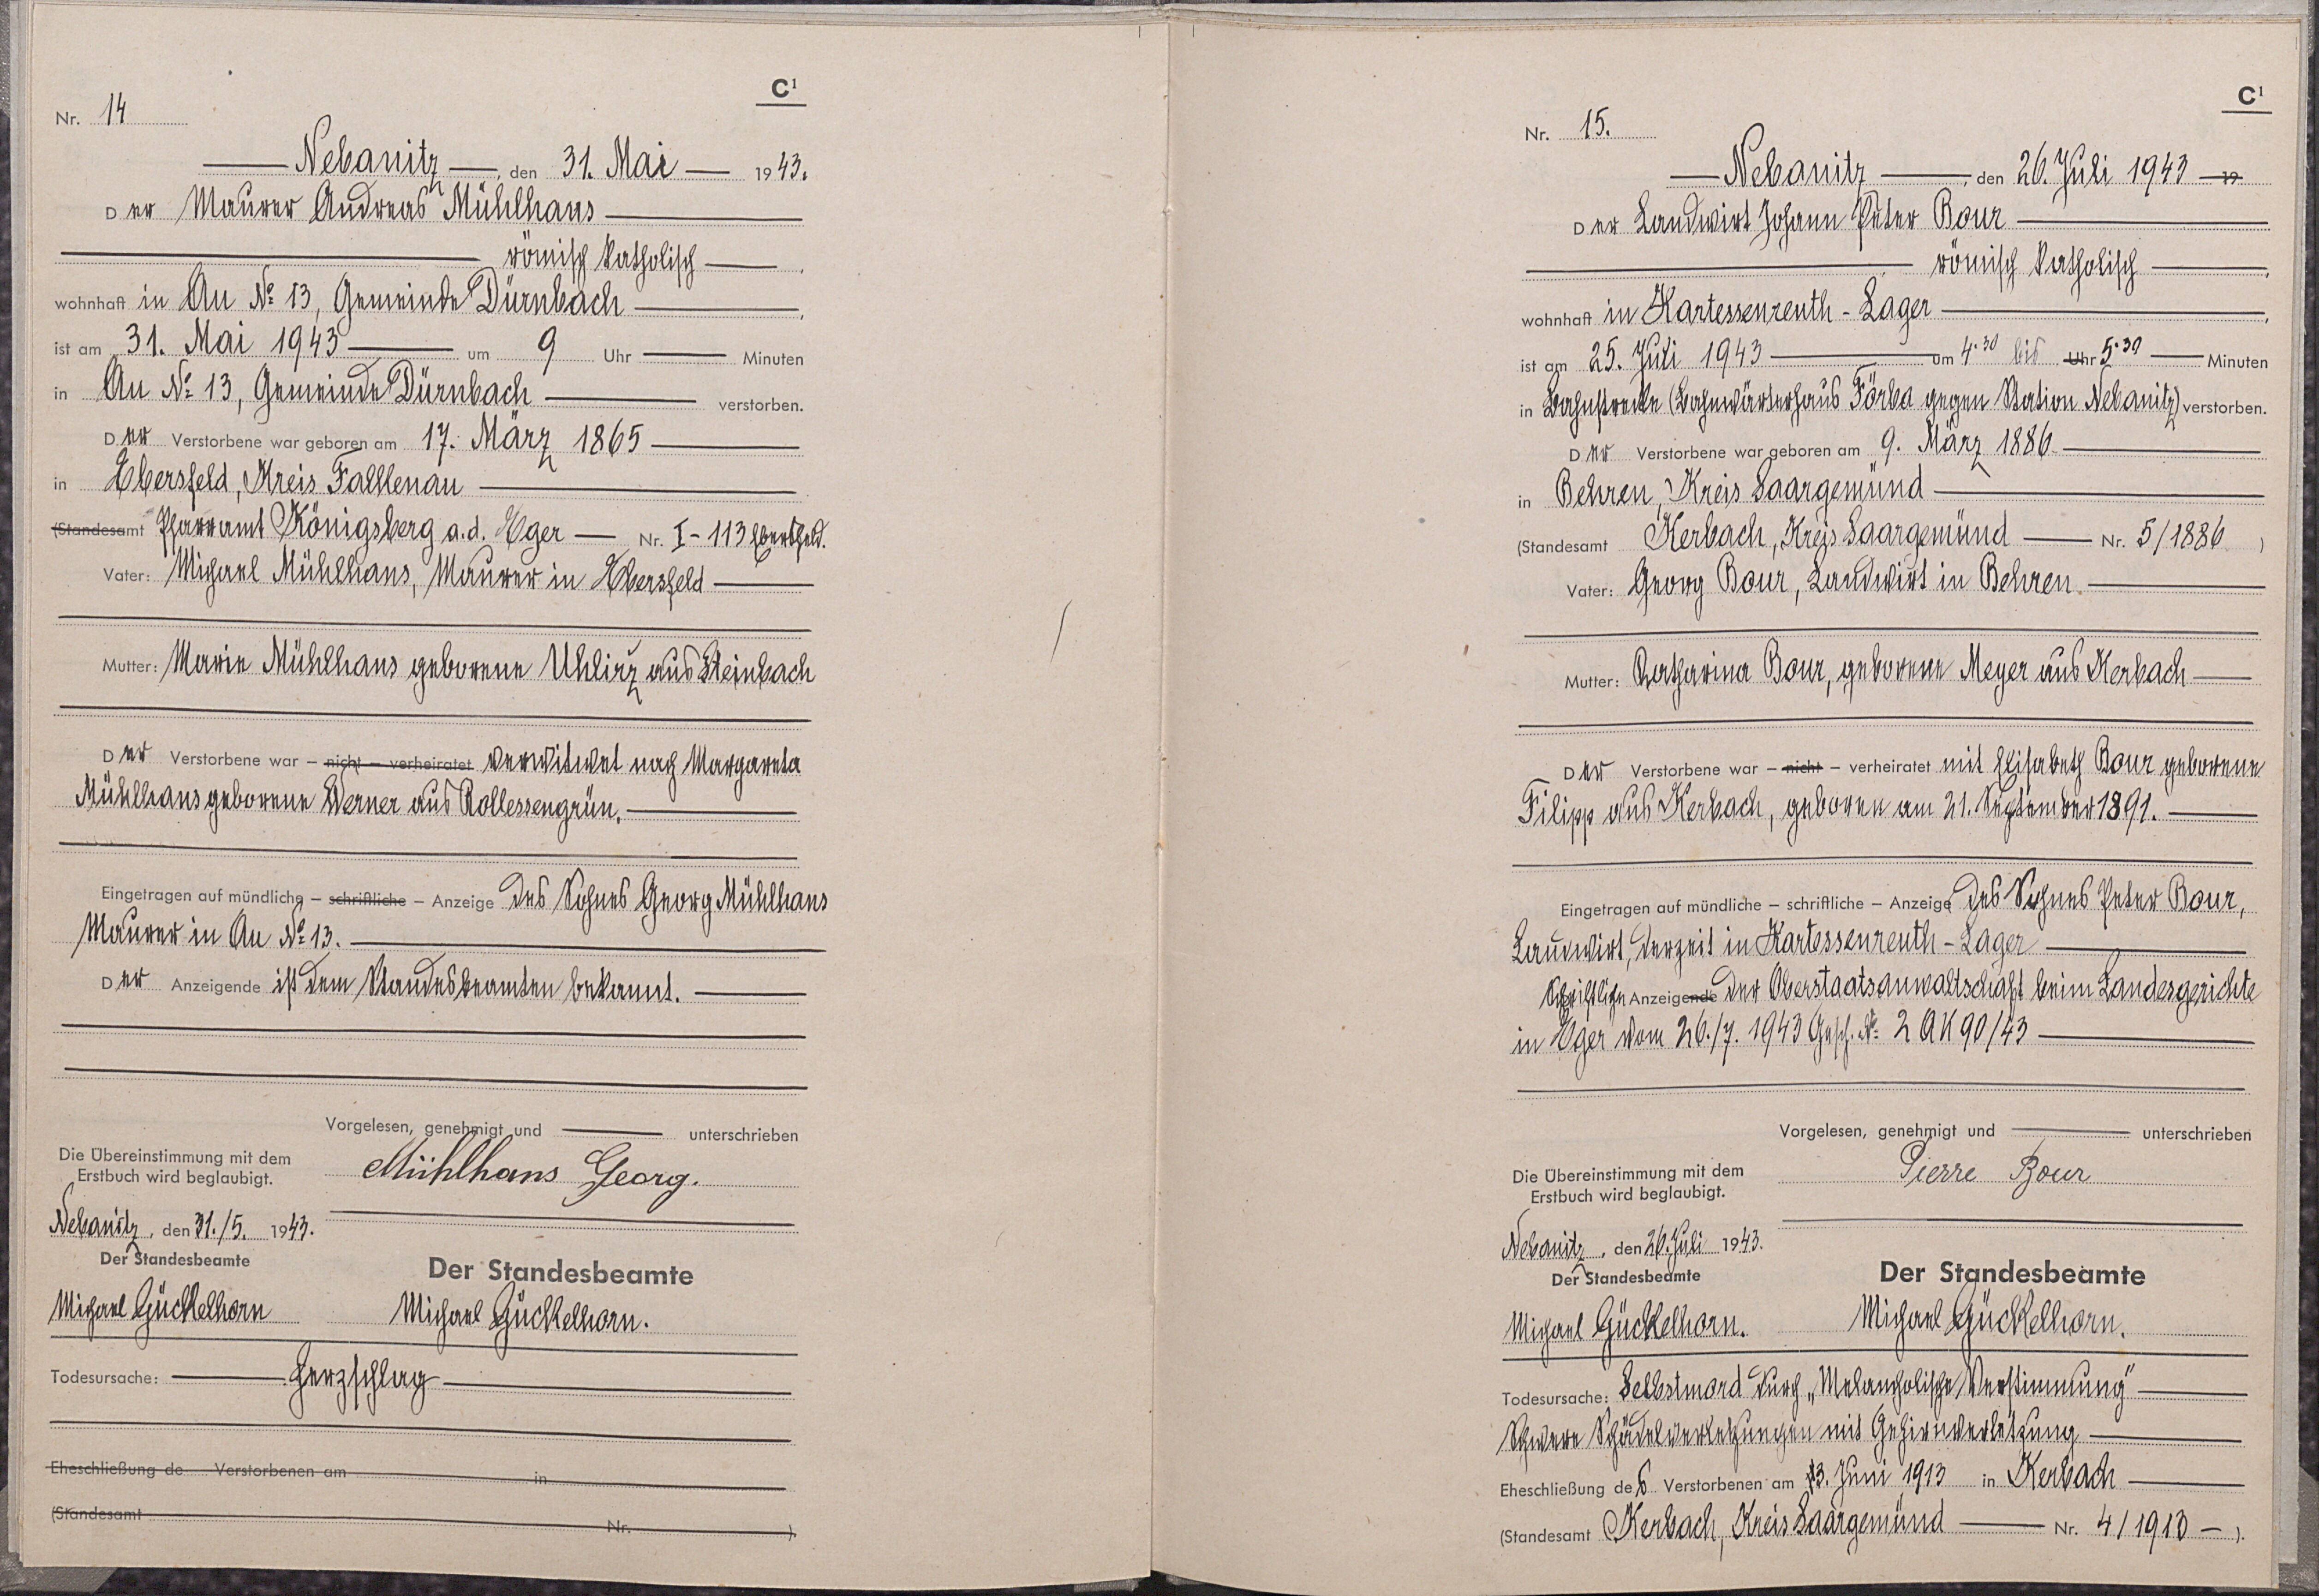 C¹
Nr. 14
Nebanitz, den 31. Mai 1943.
Der Maurer Andreas Mühlhans
römisch katholisch,
wohnhaft in Au № 13, Gemeinde Dürnbach,
ist am 31. Mai 1943 um 9 Uhr Minuten
in Au № 13, Gemeinde Dürnbach verstorben.
Der Verstorbene war geboren am 17. März 1865
in Ebersfeld, Kreis Falkenau
(Standesamt Pfarramt Königsberg a.d. Eger Nr. I-113 Ebersfeld.
Vater: Michael Mühlhans, Maurer in Ebersfeld
Mutter: Marie Mühlhans geborene Uhlirz aus Steinbach
Der Verstorbene war – nicht – verheiratet verwitwet nach Margareta
Mühlhans geborene Werner aus Rollessengrün.
Eingetragen auf mündliche – schriftliche – Anzeige des Sohnes Georg Mühlhans
Maurer in Au № 13.
Der Anzeigende ist dem Standesbeamten bekannt.
Vorgelesen, genehmigt und unterschrieben
Die Übereinstimmung mit dem
Erstbuch wird beglaubigt.
Mühlhans Georg.
Nebanitz, den 31./5. 1943.
Der Standesbeamte
Der Standesbeamte
Michael Gückelhorn
Michael Gückelhorn.
Todesursache: Herzschlag
Eheschließung de Verstorbenen am in
(Standesamt Nr. )
C¹
Nr. 15.
Nebanitz, den 26. Juli 1943 19
Der Landwirt Johann Peter Bour
römisch katholisch,
wohnhaft in Kartessenreuth - Lager,
ist am 25. Juli 1943 um 4·30 bis Uhr 5·30 Minuten
in Bahnstrecke (Bahnwärterhaus Förba gegen Station Nebanitz) verstorben.
Der Verstorbene war geboren am 9. März 1886
in Behren, Kreis Saargemünd
(Standesamt Kerbach, Kreis Saargemünd Nr. 5/1886 )
Vater: Georg Bour, Landwirt in Behren.
Mutter: Katharina Bour, geborene Meyer aus Kerbach
Der Verstorbene war – nicht – verheiratet mit Elisabeth Bour geborene
Filipp aus Kerbach, geboren am 21. September 1891.
Eingetragen auf mündliche – schriftliche – Anzeige des Sohnes Peter Bour,
Landwirt, derzeit in Kartessenreuth - Lager
Schriftliche Anzeigende der Oberstaatsanwaltschaft beim Landesgerichte
in Eger vom 26./7. 1943 Gesch. № 2 AK 90/43
Vorgelesen, genehmigt und unterschrieben
Die Übereinstimmung mit dem
Erstbuch wird beglaubigt.
Pierre Bour
Nebanitz, den 26. Juli 1943.
Der Standesbeamte
Der Standesbeamte
Michael Gückelhorn.
Michael Gückelhorn.
Todesursache: Selbstmord durch „Melancholische Verstimmung"
Schwere Schädelverletzungen mit Gehirnverletzung
Eheschließung des Verstorbenen am 13. Juni 1913 in Kerbach
(Standesamt Kerbach, Kreis Saargemünd Nr. 4/1913 – ).